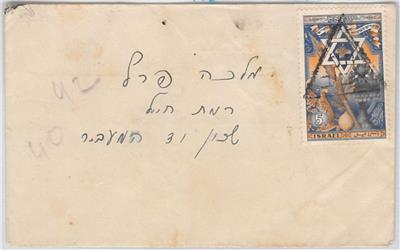 מלכה פרל
רמת חיל
שכון וד המעביר
42
40
5
ISRAEL